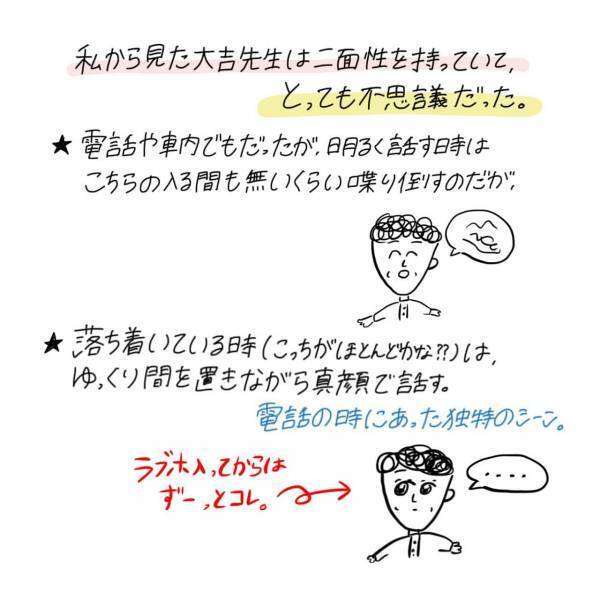 私から見た大吉先生は二面性を持っていて、
とっても不思議だった。
★ 電話や車内でもだったが、明るく話す時は
こちらの入る間も無いくらい喋り倒すのだが、
★ 落ち着いている時(こっちがほとんどかな??)は、
ゆっくり間を置きながら真顔で話す。
電話の時にあった独特のシーン。
ラブホ入ってからは
ずーっとコレ。
....